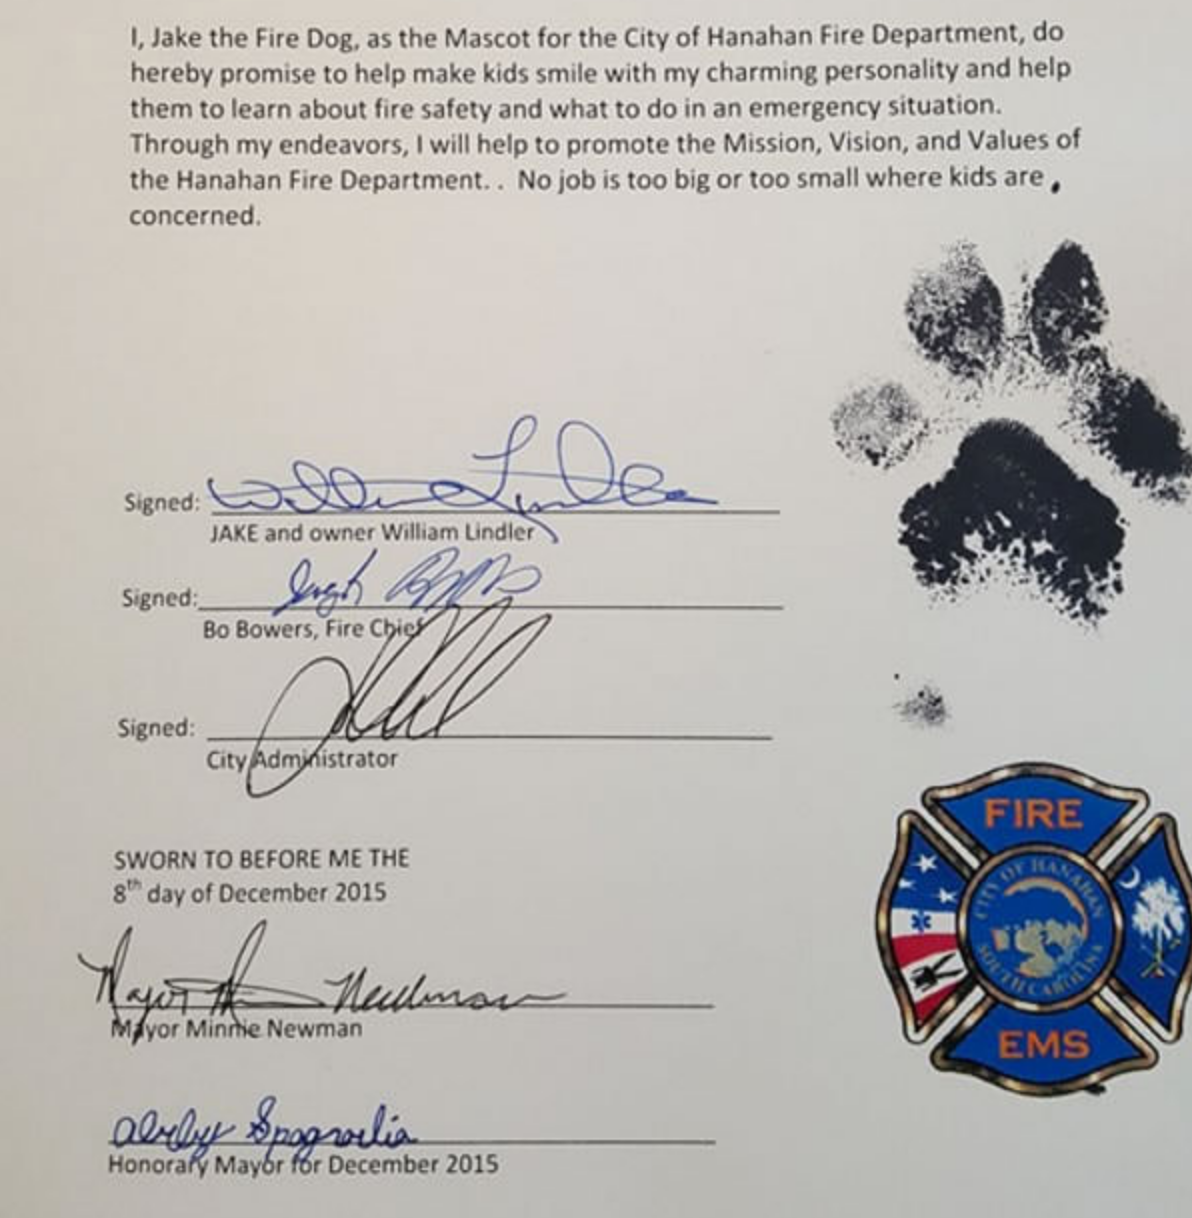 I, Jake the Fire Dog, as the Mascot for the City of Hanahan Fire Department, do
hereby promise to help make kids smile with my charming personality and help
them to learn about fire safety and what to do in an emergency situation.
Through my endeavors, I will help to promote the Mission, Vision, and Values of
the Hanahan Fire Department. .  No job is too big or too small where kids are
concerned.
Signed: William Lindler
JAKE and owner William Lindler
Signed:
Bo Bowers, Fire Chief
Signed:
City Administrator
SWORN TO BEFORE ME THE
8th day of December 2015
Mayor Minnie Newman
Mayor Minnie Newman
Honorary Mayor for December 2015
FIRE
CITY OF HANAHAN
SOUTH CAROLINA
EMS